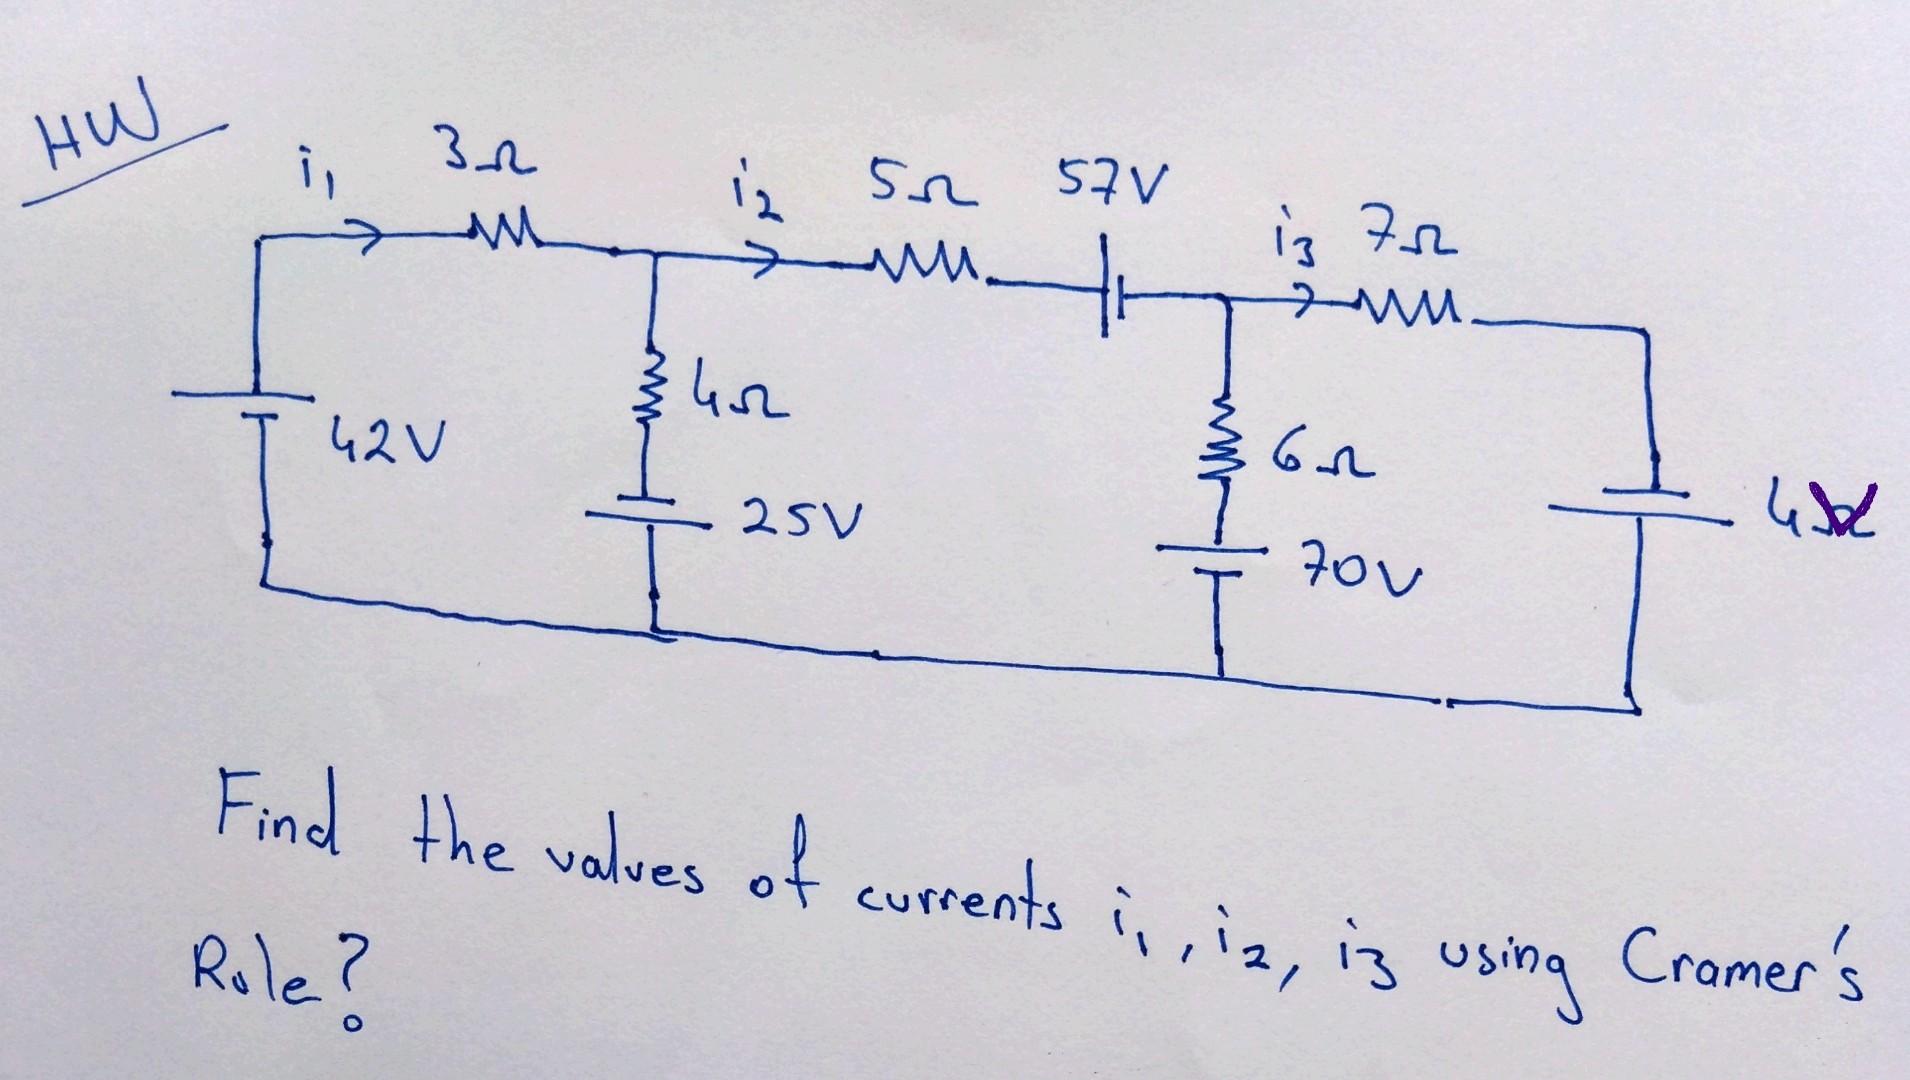 HW
i₁ 3Ω i₂ 5Ω 57V i₃ 7Ω
42V 4Ω 25V 6Ω 70V 4V
Find the values of currents i₁, i₂, i₃ using Cramer's
Role?